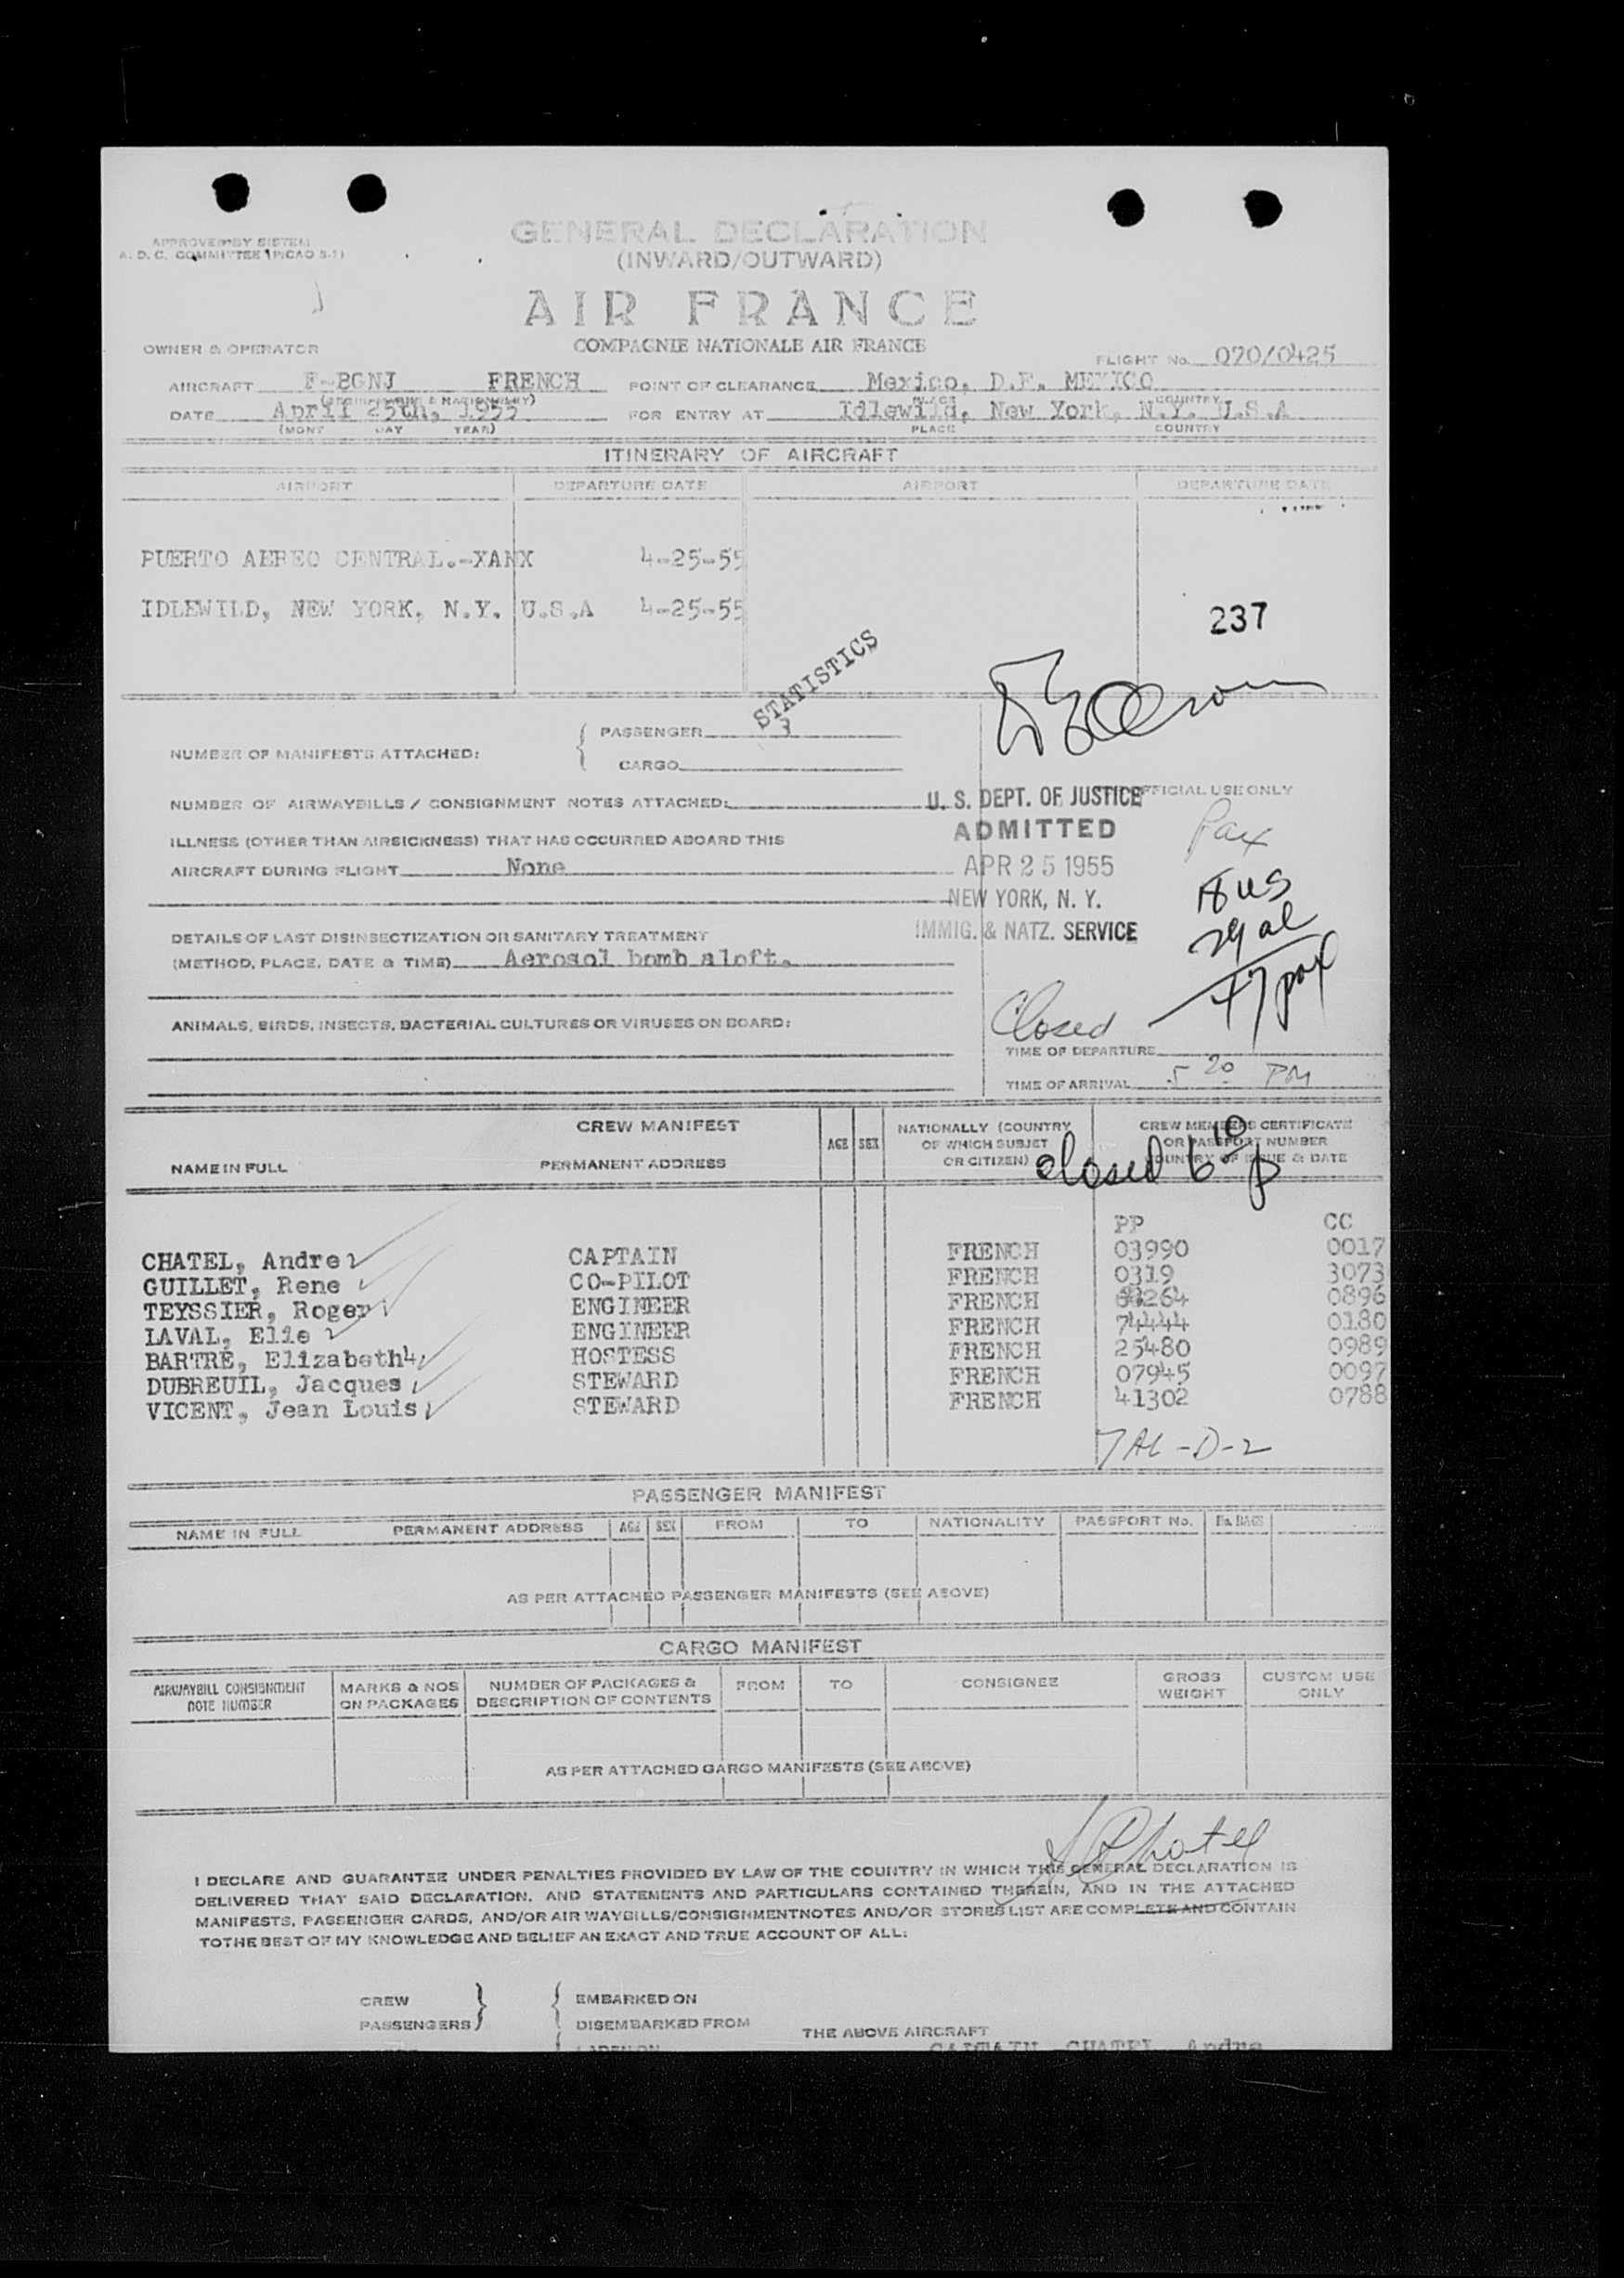 GENERAL DECLARATION
(INWARD/OUTWARD)
APPROVED BY SISTEM
A. D. C. COMMITTEE (PICAO S-1)
AIR FRANCE
COMPAGNIE NATIONALE AIR FRANCE
OWNER & OPERATOR
FLIGHT No. 070/0425
AIRCRAFT F-BGNJ FRENCH POINT OF CLEARANCE Mexico, D.F. MEXICO
PLACE COUNTRY
DATE April 25th, 1955 FOR ENTRY AT Idlewild, New York, N.Y. U.S.A
(MONT DAY YEAR) PLACE COUNTRY
ITINERARY OF AIRCRAFT
AIRPORT DEPARTURE DATE AIRPORT DEPARTURE DATE
PUERTO AEREO CENTRAL.-XAMX 4-25-55
IDLEWILD, NEW YORK, N.Y. U.S.A 4-25-55
237
STATISTICS
NUMBER OF MANIFESTS ATTACHED: PASSENGER 3
CARGO
NUMBER OF AIRWAYBILLS / CONSIGNMENT NOTES ATTACHED:
U. S. DEPT. OF JUSTICE OFFICIAL USE ONLY
ADMITTED
APR 25 1955
NEW YORK, N. Y.
IMMIG. & NATZ. SERVICE
Pax
18 US
29 al
47 pax
ILLNESS (OTHER THAN AIRSICKNESS) THAT HAS OCCURRED ABOARD THIS
AIRCRAFT DURING FLIGHT None
DETAILS OF LAST DISINSECTIZATION OR SANITARY TREATMENT
(METHOD, PLACE, DATE & TIME) Aerosol bomb aloft.
ANIMALS, BIRDS, INSECTS, BACTERIAL CULTURES OR VIRUSES ON BOARD:
Closed
TIME OF DEPARTURE
TIME OF ARRIVAL 5 20 PM
CREW MANIFEST
NAME IN FULL PERMANENT ADDRESS AGE SEX NATIONALLY (COUNTRY OF WHICH SUBJET OR CITIZEN) CREW MEMBERS CERTIFICATE OR PASSPORT NUMBER COUNTRY OF ISSUE & DATE
closed 6 10 p
PP CC
CHATEL, Andre CAPTAIN FRENCH 03990 0017
GUILLET, Rene CO-PILOT FRENCH 0319 3073
TEYSSIER, Roger ENGINEER FRENCH 264 0896
LAVAL, Elie ENGINEER FRENCH 74444 0180
BARTRE, Elizabeth HOSTESS FRENCH 25480 0989
DUBREUIL, Jacques STEWARD FRENCH 07945 0097
VICENT, Jean Louis STEWARD FRENCH 41302 0788
7 AL-D-2
PASSENGER MANIFEST
NAME IN FULL PERMANENT ADDRESS AGE SEX FROM TO NATIONALITY PASSPORT No. BAGS
AS PER ATTACHED PASSENGER MANIFESTS (SEE ABOVE)
CARGO MANIFEST
AIRWAYBILL CONSIGNMENT NOTE NUMBER MARKS & NOS ON PACKAGES NUMBER OF PACKAGES & DESCRIPTION OF CONTENTS FROM TO CONSIGNEE GROSS WEIGHT CUSTOM USE ONLY
AS PER ATTACHED CARGO MANIFESTS (SEE ABOVE)
A Chatel
I DECLARE AND GUARANTEE UNDER PENALTIES PROVIDED BY LAW OF THE COUNTRY IN WHICH THIS GENERAL DECLARATION IS
DELIVERED THAT SAID DECLARATION, AND STATEMENTS AND PARTICULARS CONTAINED THEREIN, AND IN THE ATTACHED
MANIFESTS, PASSENGER CARDS, AND/OR AIR WAYBILLS/CONSIGNMENTNOTES AND/OR STORES LIST ARE COMPLETE AND CONTAIN
TOTHE BEST OF MY KNOWLEDGE AND BELIEF AN EXACT AND TRUE ACCOUNT OF ALL:
CREW EMBARKED ON
PASSENGERS DISEMBARKED FROM THE ABOVE AIRCRAFT
LADEN ON CAPTAIN CHATEL Andre